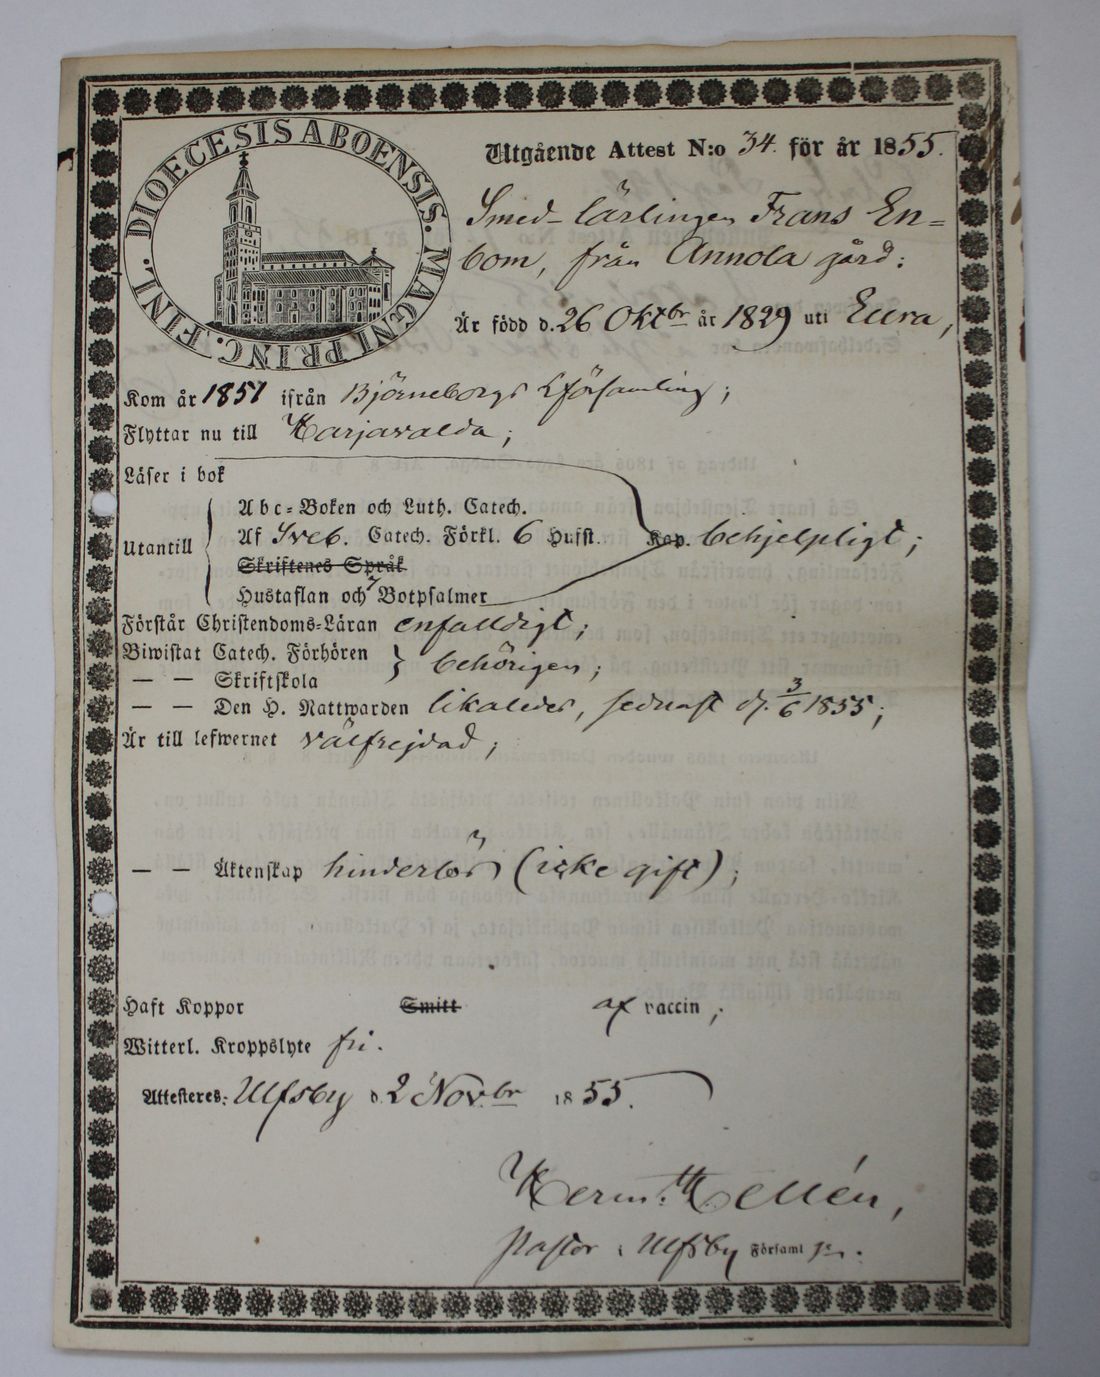 DIOECESIS ABOENSIS. MAGNI PRINC. FINL.
Utgående Attest N:o 34. för år 1855.
Smed-lärlingen Frans En=
bom, från Annola gård:
Är född d. 26 Oktbr år 1829 uti Eura,
Kom år 1851 ifrån Björneborgs Lförsamling;
Flyttar nu till Harjavalda;
Läser i bok
Utantill
Abc=Boken och Luth. Catech.
Af Sveb. Catech. Förkl. 6 Hufst. Kap. behjelpligt;
Skriftenes Språk
Hustaflan och 7 Botpsalmer
Förstår Christendoms=Läran enfalldigt;
Biwistat Catech. Förhören
— — Skriftskola behörigen;
— — Den H. Nattwarden likaledes, sednast d. 3/6 1855;
Är till lefwernet välfrejdad;
— — Äktenskap hinderlös (icke gift);
Haft Koppor Smitt af vaccin;
Witterl. Kroppslyte fri.
Attesteras: Ulfsby d. 2 Novbr 1855.
Herm. Hellén,
Pastor i Ulfsby Församl